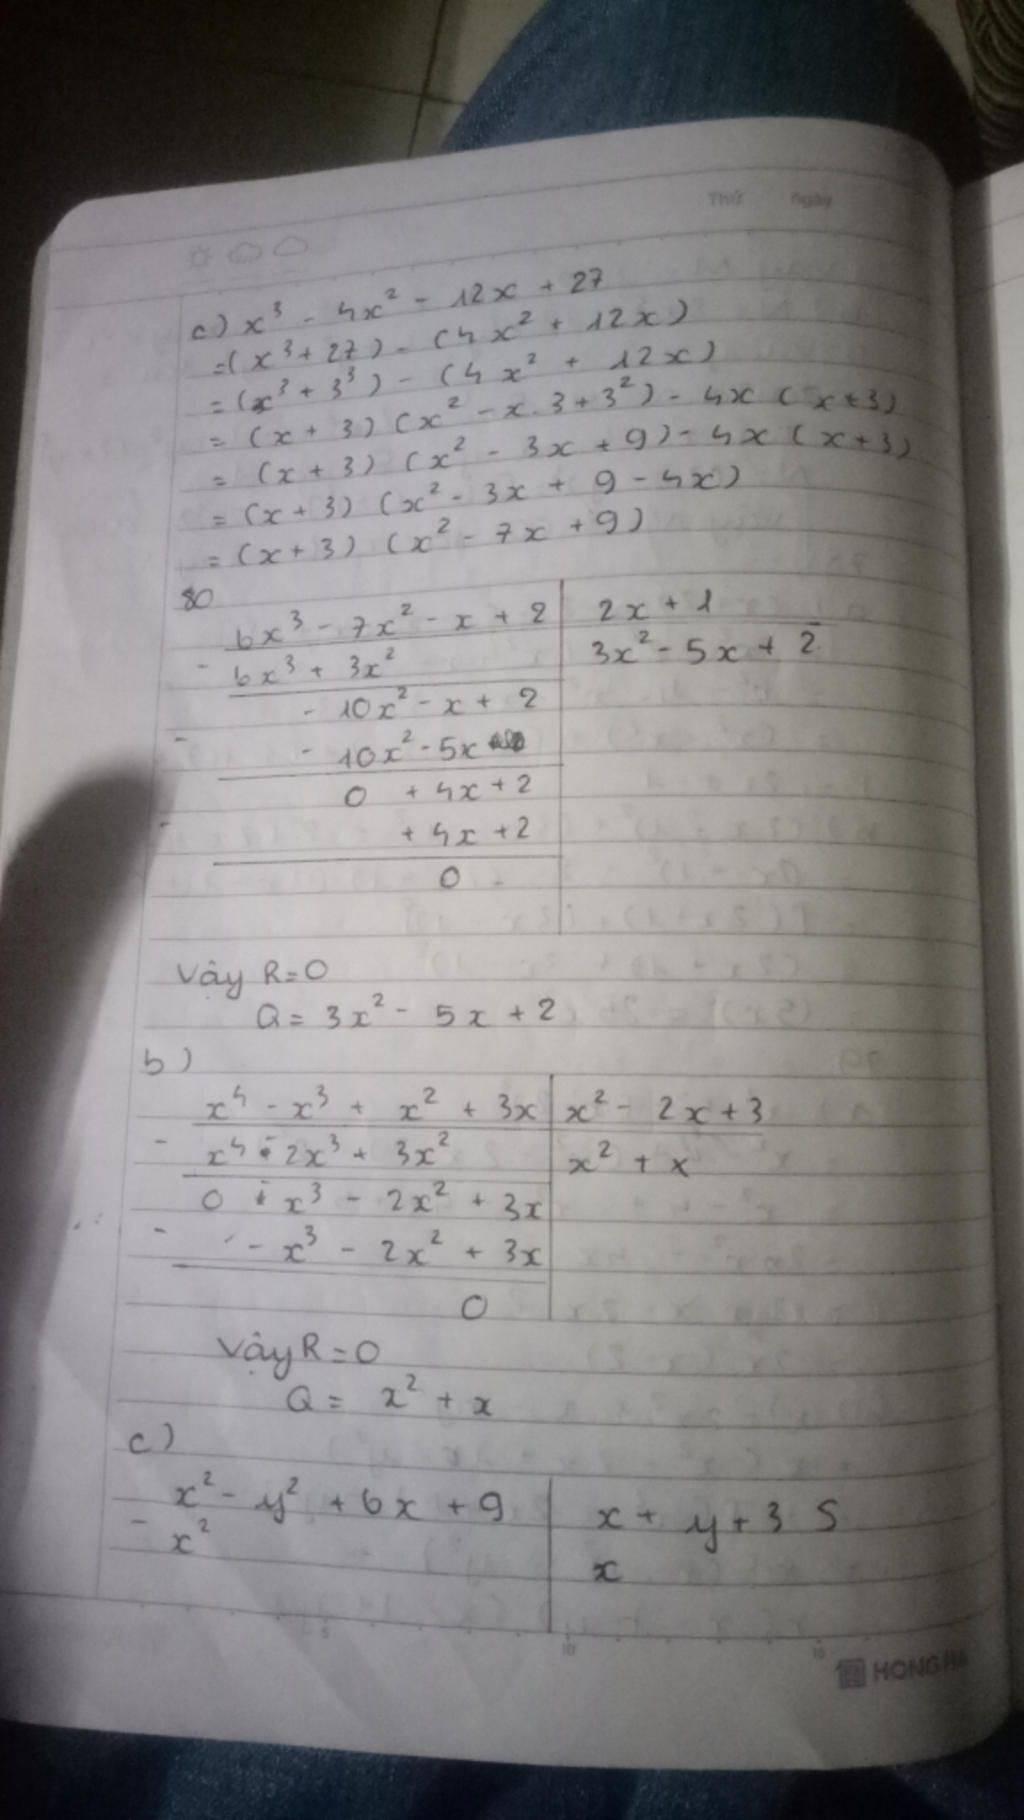 Thứ ngày
c) x³ - 4x² - 12x + 27
=(x³ + 27) - (4x² + 12x)
= (x³ + 3³) - (4x² + 12x)
= (x + 3) (x² - x.3 + 3²) - 4x (x+3)
= (x + 3) (x² - 3x + 9) - 4x (x+3)
= (x + 3) (x² - 3x + 9 - 4x)
= (x + 3) (x² - 7x + 9)
80
6x³ - 7x² - x + 2 | 2x + 1
- 6x³ + 3x² | 3x² - 5x + 2
- 10x² - x + 2
- - 10x² - 5x
0 + 4x + 2
- + 4x + 2
0
Vậy R = 0
Q = 3x² - 5x + 2
b)
x⁴ - x³ + x² + 3x | x² - 2x + 3
- x⁴ - 2x³ + 3x² | x² + x
0 + x³ - 2x² + 3x
- - x³ - 2x² + 3x
0
Vậy R = 0
Q = x² + x
c)
x² - y² + 6x + 9 | x + y + 3 S
- x² | x
5 10 15
HONG HA